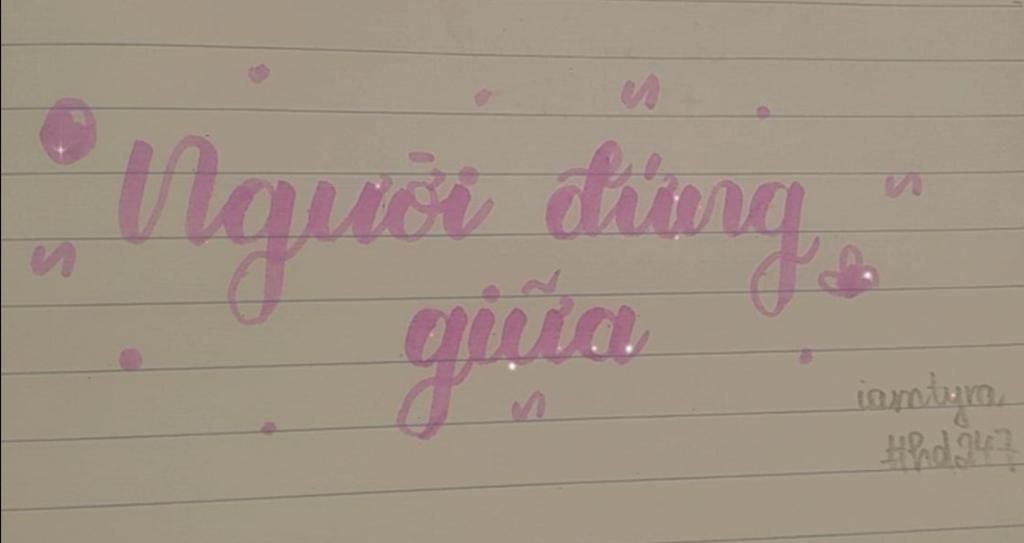 Người đứng
giữa
iamtyra
#hd247